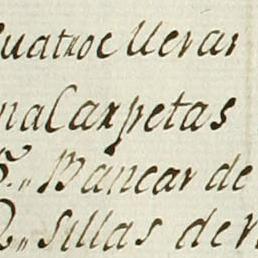 Quatro e llevar
na Carpetas
Mancar de
Sillas de